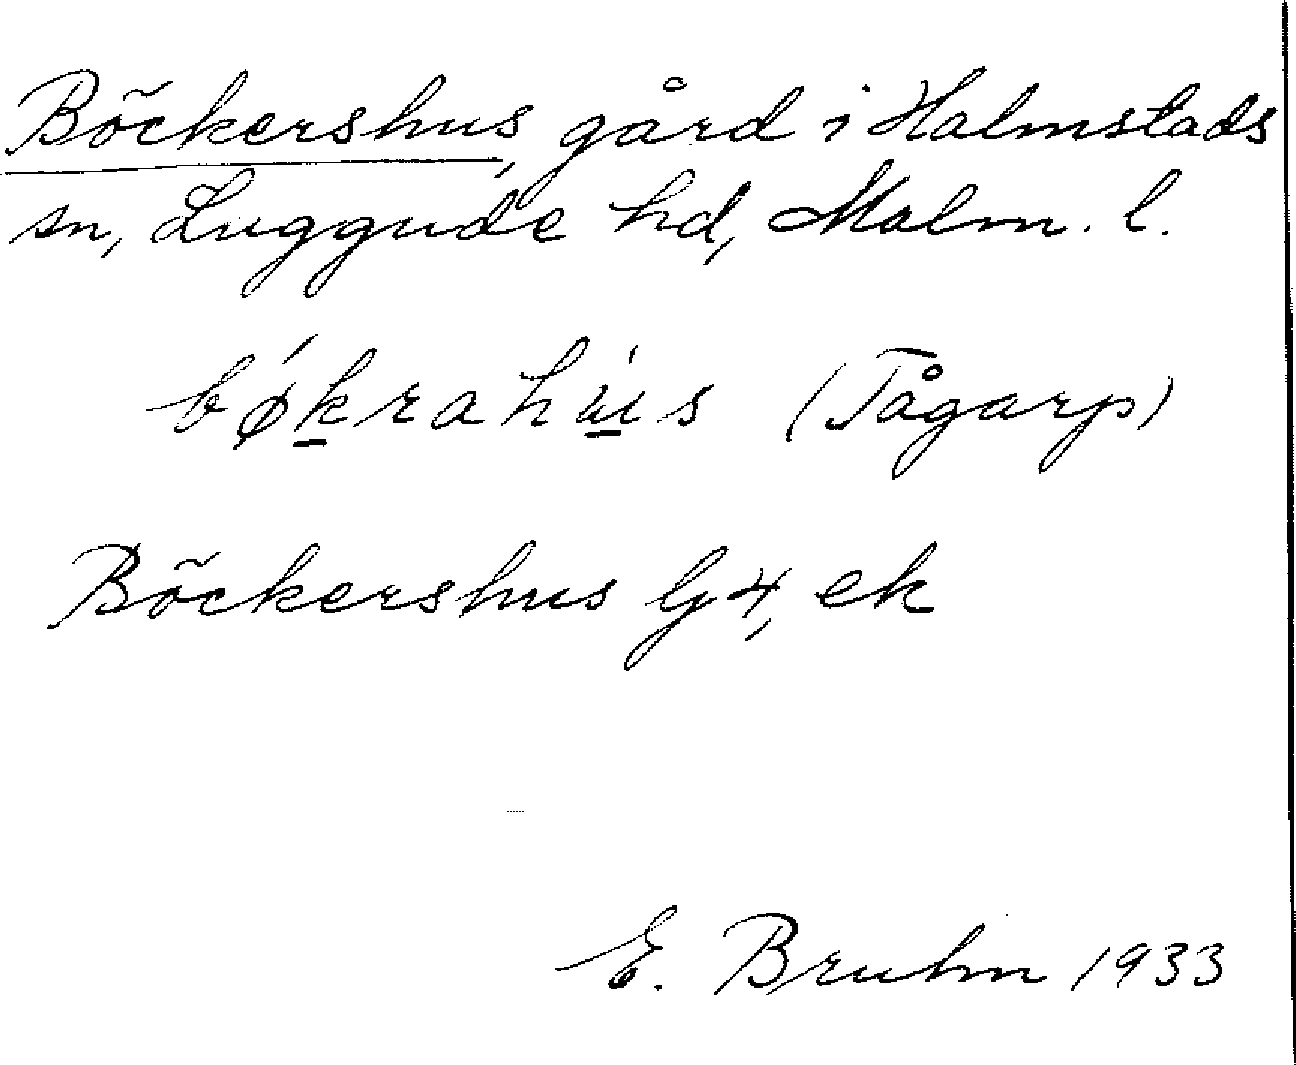 Böckershus, gård i Halmstads
sn, Luggude hd, Malm. l.
bǿk̲rahú̲s (Tågarp)
Böckershus G4, ek
E. Bruhn 1933